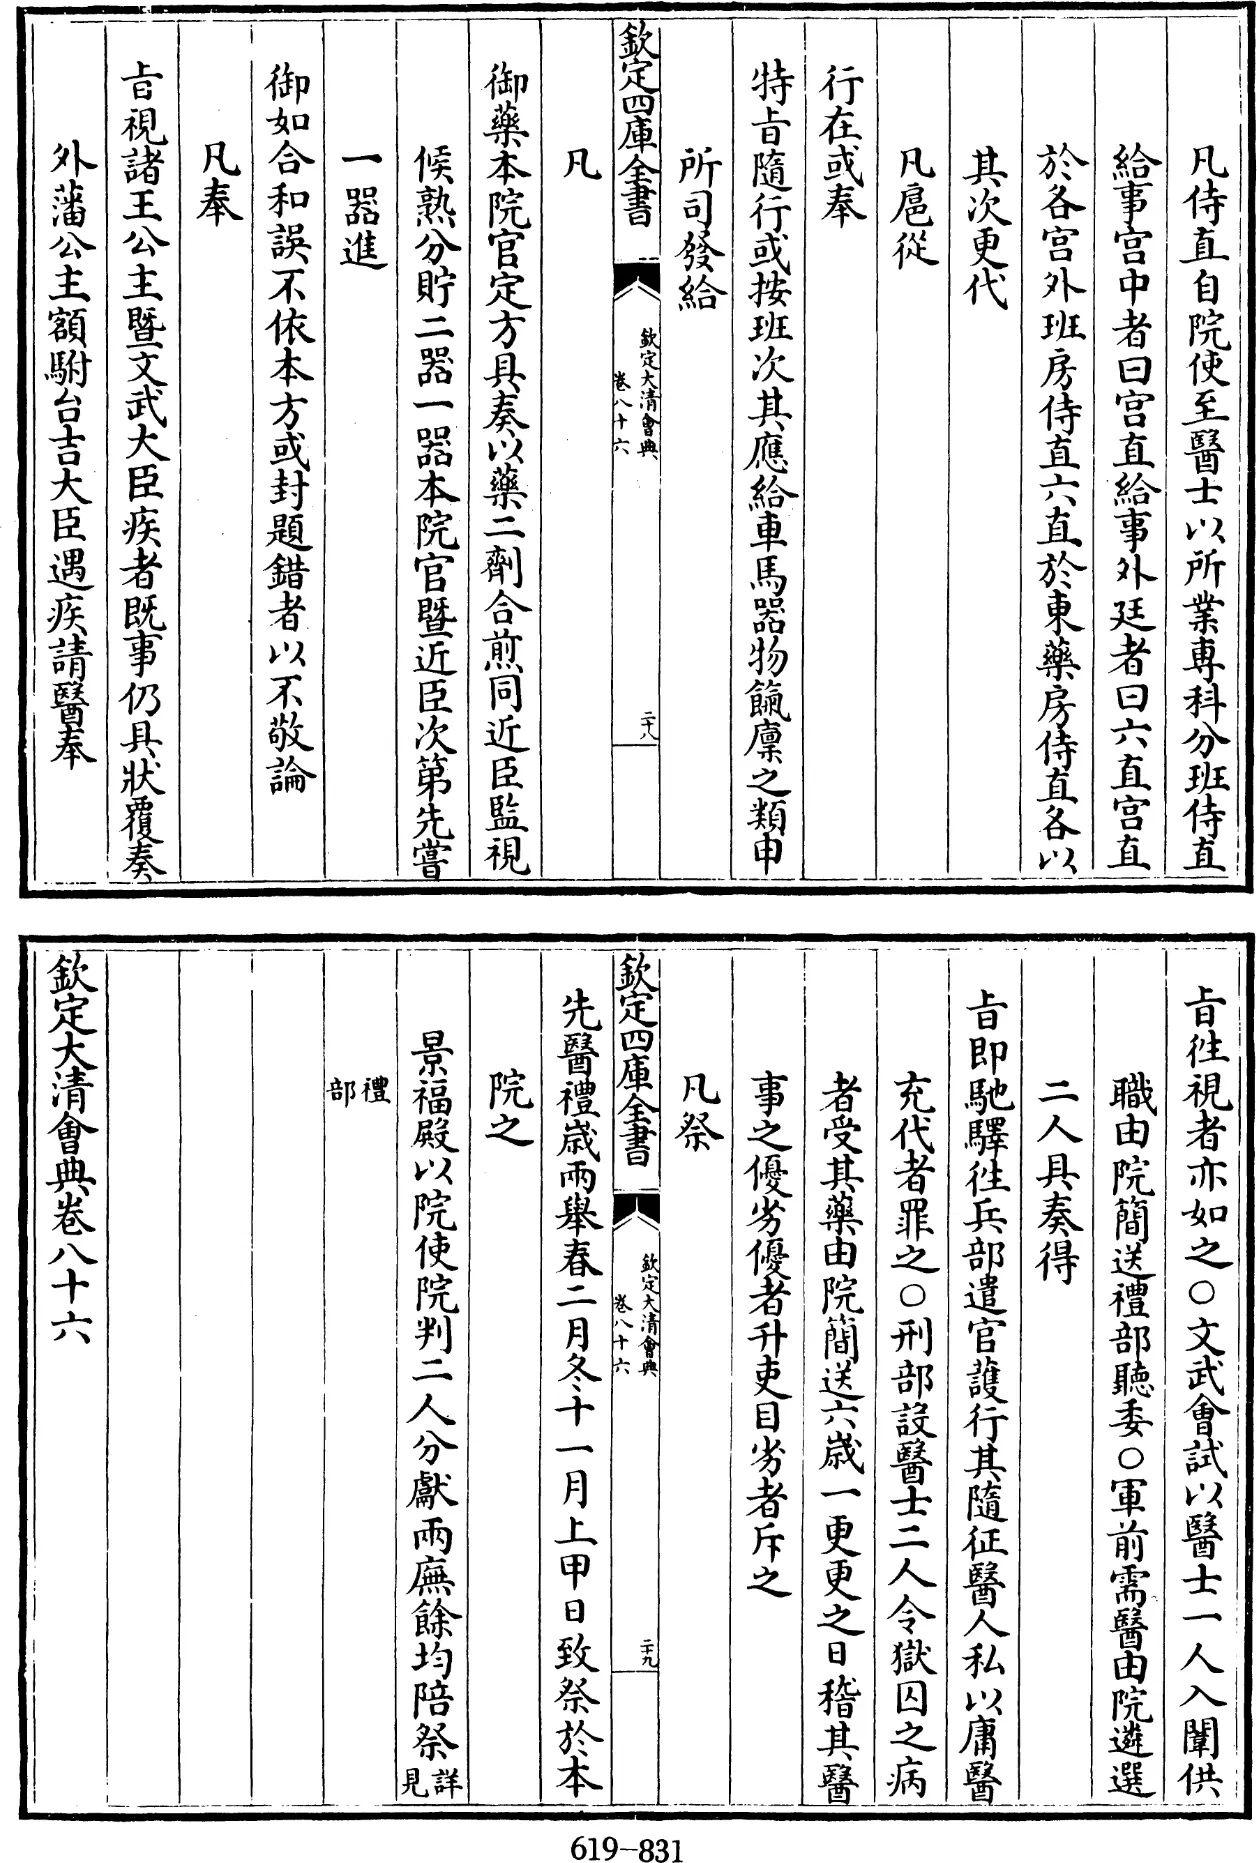 凡侍直自院使至醫士以所業專科分班侍直
給事宫中者曰宫直給事外廷者曰六直宫直
於各宫外班房侍直六直於東藥房侍直各以
其次更代
凡扈從
行在或奉
特㫖隨行或按班次其應給車馬器物餼廪之類申
所司發給
欽定四庫全書
欽定大清會典
卷八十六
二十八
凡
御藥本院官定方具奏以藥二劑合煎同近臣監視
候熟分貯二器一器本院官暨近臣次第先嘗
一器進
御如合和誤不依本方或封題錯者以不敬論
凡奉
㫖視諸王公主暨文武大臣疾者既事仍具狀覆奏
外藩公主額駙台吉大臣遇疾請醫奉
㫖徃視者亦如之○文武會試以醫士一人入闈供
職由院簡送禮部聽委○軍前需醫由院遴選
二人具奏得
㫖即馳驛徃兵部遣官護行其隨征醫人私以庸醫
充代者罪之○刑部設醫士二人令獄囚之病
者受其藥由院簡送六歳一更更之日稽其醫
事之優劣優者升吏目劣者斥之
凡祭
欽定四庫全書
欽定大清會典
卷八十六
二十九
先醫禮歳兩舉春二月冬十一月上甲日致祭於本
院之
景福殿以院使院判二人分獻兩廡餘均陪祭詳見
禮部
欽定大清會典卷八十六
619-831